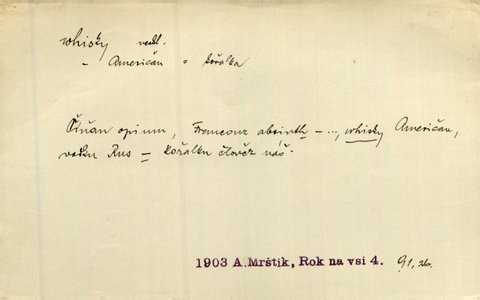 whisky neskl.
– Američan = kořalka
Číňan opium, Francouz absinth – ..., whisky Američan,
vodku Rus – kořalku člověk náš.
1903 A. Mrštík, Rok na vsi 4. 91,